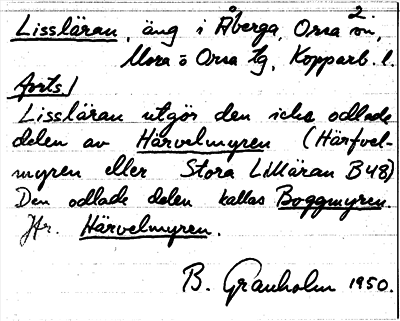 2.
Lissläran, äng i Åberga, Orsa sn,
Mora o Orsa tg, Kopparb. l.
forts/
Lissläran utgör den icke odlade
delen av Härvelmyren (Härfvel-
myren eller Stora Lilläran B48)
Den odlade delen kallas Boggmyren.
Jfr. Härvelmyren.
B. Granholm 1950.